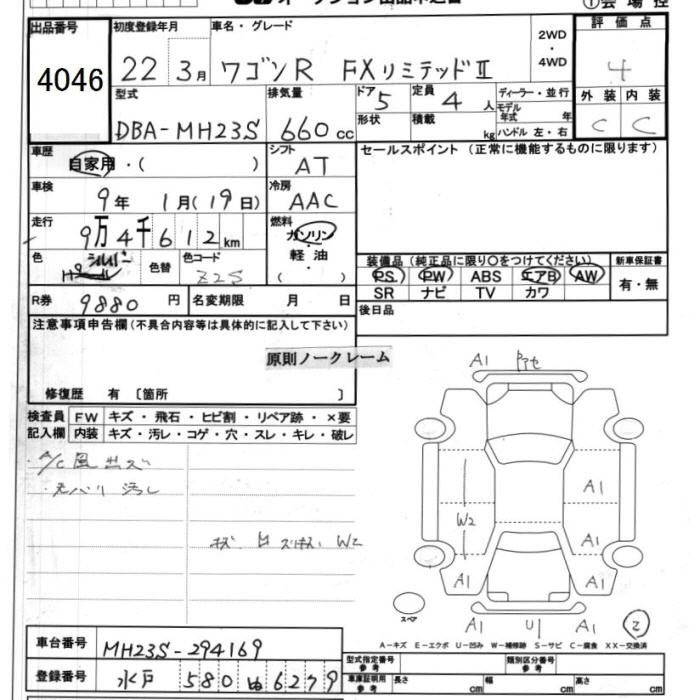 出品番号
4046
初度登録年月
22 3月
車名・グレード
ワゴンR FXリミテッドⅡ
2WD
・
4WD
評価点
4
型式
DBA-MH23S
排気量
660cc
ドア
5
定員
4人
形状
積載
kg
ディーラー・並行
モデル年式 年
ハンドル 左・右
外装 内装
C C
車歴
自家用・( )
シフト
AT
セールスポイント (正常に機能するものに限ります)
車検
9年 1月(19日)
冷房
AAC
走行
9万4千612km
燃料
ガソリン
・
軽油
・
( )
色
シルバー
色替
色コード
Z2S
装備品 (純正品に限り○をつけてください)
PS PW ABS エアB AW
SR ナビ TV カワ
新車保証書
有・無
R券
9880円
名変期限 月 日
後日品
注意事項申告欄(不具合内容等は具体的に記入して下さい)
原則ノークレーム
修復歴 有〔箇所 〕
検査員記入欄
FW キズ・飛石・ヒビ割・リペア跡・×要
内装 キズ・汚レ・コゲ・穴・スレ・キレ・破レ
A/C風出ズ
汚レ
W2
A1
A1
W2
A1
A1
A1
スペア
U1
A1
2
A-キズ E-エクボ U-凹み W-補修跡 S-サビ C-腐食 XX-交換済
車台番号
MH23S-294169
登録番号
水戸 580 6279
型式指定番号
参考
類別区分番号
参考
車庫証明用
参考
長さ cm
幅 cm
高さ cm